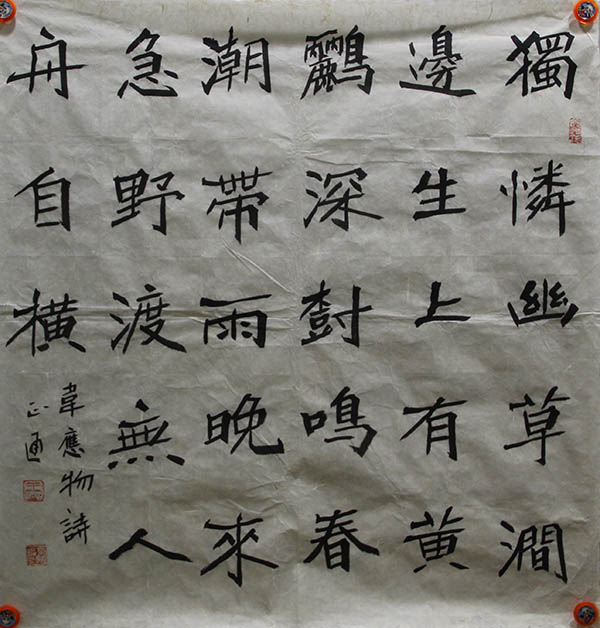 獨憐幽草澗
邊生上有黄
鸝深樹鳴春
潮帶雨晚來
急野渡無人
舟自橫
韋應物詩
正通